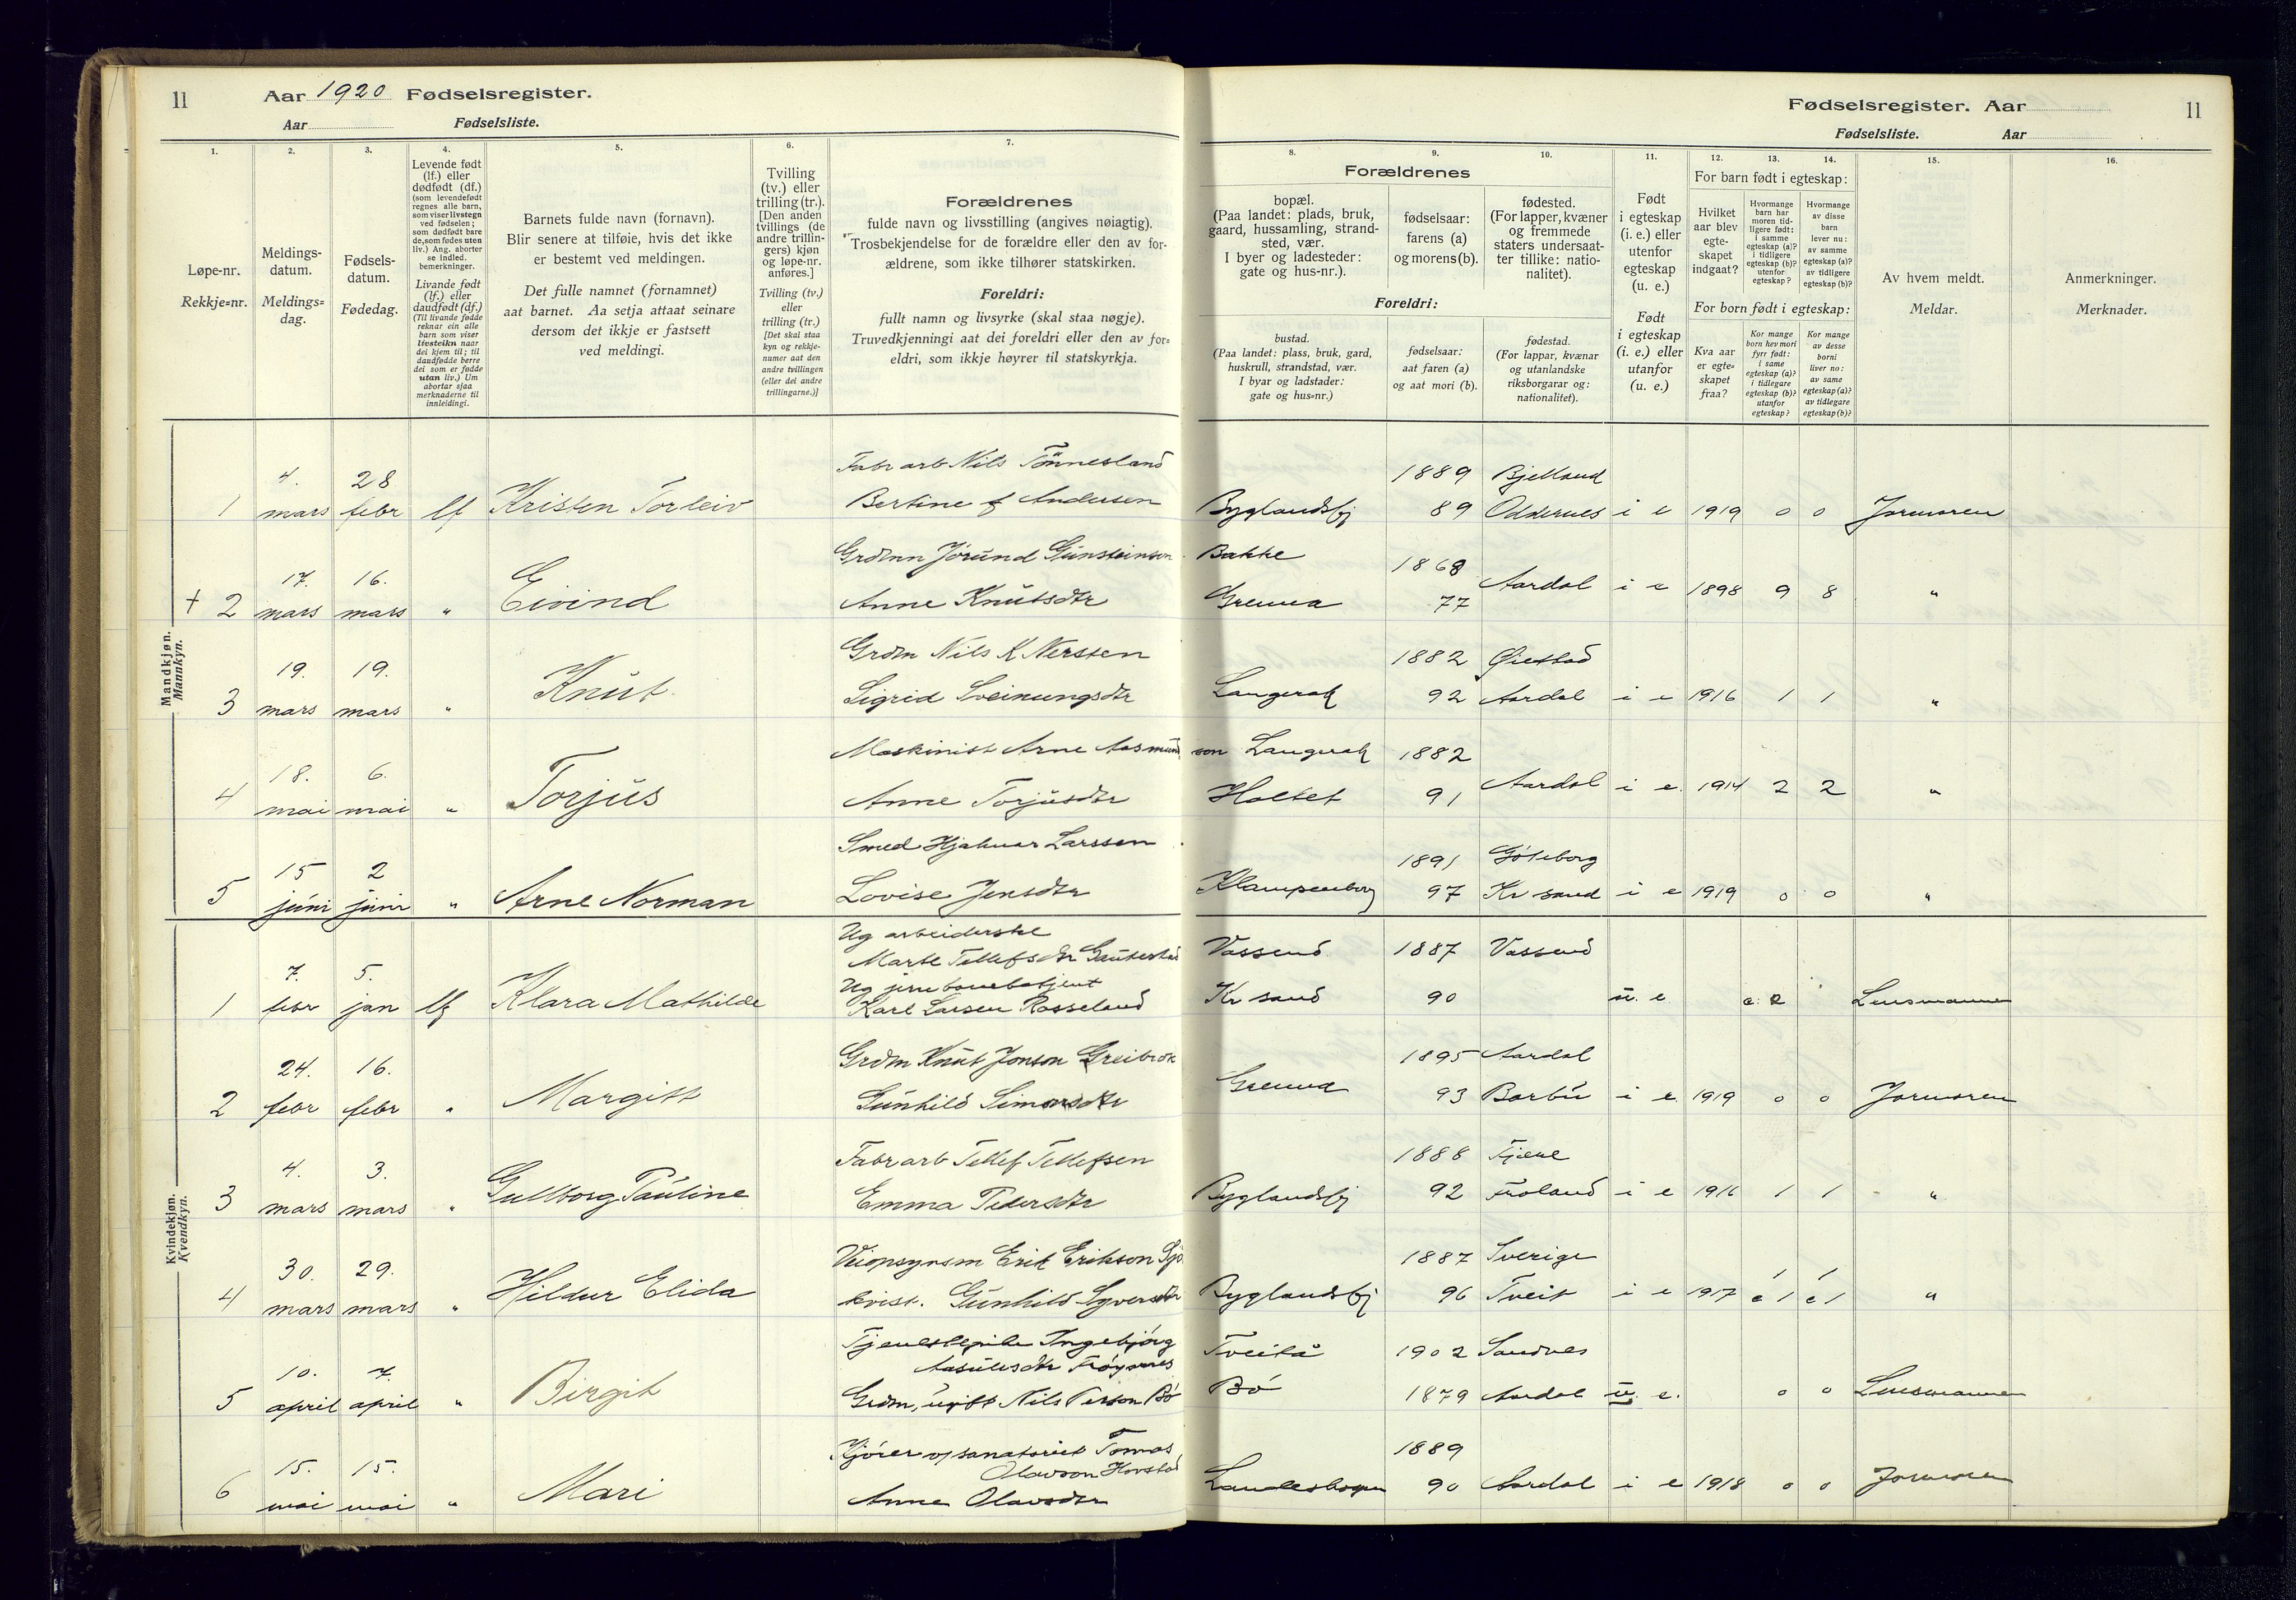 11 Aar 1920 Fødselsregister.
Aar Fødselsliste.
1.
2.
3.
4.
5.
6.
7.
Løpe-nr.
Rekkje=nr.
Meldings-
datum.
Meldings=
dag.
Fødsels-
datum.
Fødedag.
Levende født
(lf.) eller
dødfødt (df.)
(som levendefødt
regnes alle barn,
som viser livstegn
ved fødselen;
som dødfødt bare
de, som fødes uten
liv.) Ang. aborter
se indled.
bemerkninger.
Livande født
(lf.) eller
daudfødt (df.)
(Til livande fødde
reknar ein alle
born som viser
livsteikn naar
dei kjem til; til
daudfødde berre
dei som er fødde
utan liv.) Um
abortar sjaa
merknaderne til
innleidingi.
Barnets fulde navn (fornavn).
Blir senere at tilføie, hvis det ikke
er bestemt ved meldingen.
Det fulle namnet (fornamnet)
aat barnet. Aa setja attaat seinare
dersom det ikkje er fastsett
ved meldingi.
Tvilling
(tv.) eller
trilling (tr.).
[Den anden
tvillings (de
andre trillin-
gers) kjøn
og løpe-nr.
anføres.]
Tvilling (tv.)
eller
trilling (tr.)
[Det skal staa
kyn og rekkje-
numer aat den
andre tvillingen
(eller dei andre
trillingarne.)]
Forældrenes
fulde navn og livsstilling (angives nøiagtig).
Trosbekjendelse for de forældre eller den av for-
ældrene, som ikke tilhører statskirken.
Foreldri:
fullt namn og livsyrke (skal staa nøgje).
Truvedkjenningi aat dei foreldri eller den av for=
eldri, som ikkje høyrer til statskyrkja.
Mandkjøn.
Mannkyn.
1 4. mars 28 febr lf Kristen Torleiv Fabrarb Nils Tönnesland
Bertine f Andersen
+ 2 17. mars 16. mars " Eivind Grdmn Jörund Gunsteinson
Anne Knutsdtr
3 19. mars 19. mars " Knut Grdm Nils K Nersten
Sigrid Sveinungsdtr
4 18. mai 6. mai " Torjus Maskinist Arne Aasmund
Anne Torjusdtr
5 15 juni 2 juni " Arne Norman Smed Hjalmar Larssen
Lovise Jensdtr
Kvindekjøn.
Kvendkyn.
1 7. febr 5. jan lf Klara Mathilde Ug arbeiderske
Marte Tellefsdtr Gautestad
Ug jernbanebetjent
Karl Larsen Rosseland
2 24. febr 16. febr " Margitt Grdm Knut Jonson Greibrok
Gunhild Simonsdtr
3 4. mars 3. mars " Gullborg Pauline Fabrarb Tellef Tellefsen
Emma Pedersdtr
4 30. mars 29. mars " Hildur Elida Veiopsynsm Erik Erikson Sjö
kvist. Gunhild Syversdtr
5 10. april 7. april " Birgit Tjenestepike Ingebjörg
Aasulsdtr Fröysnes
Grdm, ugift Nils Person Bö
6 15. mai 15. mai " Mari Kjörer v/sanatoriet Tomas
Olavson Horstad
Anne Olavsdtr
Fødselsregister. Aar 11
Fødselsliste. Aar
8.
9.
10.
11.
12.
13.
14.
15.
16.
Forældrenes
bopæl.
(Paa landet: plads, bruk,
gaard, hussamling, strand-
sted, vær.
I byer og ladesteder:
gate og hus-nr.).
fødselsaar:
farens (a)
og morens (b).
fødested.
(For lapper, kvæner
og fremmede
staters undersaat-
ter tillike: natio-
nalitet).
Foreldri:
bustad.
(Paa landet: plass, bruk, gard,
huskrull, strandstad, vær.
I byar og ladstader:
gate og hus=nr.)
fødselsaar:
aat faren (a)
og aat mori (b).
fødestad.
(For lappar, kvænar
og utanlandske
riksborgarar og:
nationalitet).
Født
i egteskap
(i. e.) eller
utenfor
egteskap
(u. e.)
Født
i egteskap
(i. e.) eller
utanfor
(u. e.)
For barn født i egteskap:
Hvilket
aar blev
egte-
skapet
indgaat?
Hvormange
barn har
moren tid-
ligere født:
i samme
egteskap (a)?
i tidligere
egteskap (b)?
utenfor
egteskap?
Hvormange
av disse
barn
lever nu:
av samme
egteskap (a)?
av tidligere
egteskap (b)?
For born født i egteskap:
Kva aar
er egte=
skapet
fraa?
Kor mange
born hev mori
fyrr født:
i same
egteskap (a)?
i tidlegare
egteskap (b)?
utanfor
egteskap?
Kor mange
av desse
borni
liver no:
av same
egteskap (a)?
av tidlegare
egteskap (b)?
Av hvem meldt.
Meldar.
Anmerkninger.
Merknader.
1889 Bjelland
Byglandsfj 89 Oddernes i e 1919 0 0 Jormoren
Bakke 1868
Grenna 77 Aardal i e 1898 9 8 "
1882 Øiestad
Langerak 92 Aardal i e 1916 1 1 "
son Langerak 1882
Holtet 91 Aardal i e. 1914 2 2 "
1891 Göteborg
Klampenborg 97 Kr sand i e 1919 0 0 "
Vassend 1887 Vassend
Kr sand 90 u. e 2 Lensmannen
1895 Aardal
Grenna 93 Barbu i e. 1919 0 0 Jormoren
1888
Byglandsfj 92 Froland i e 1916 1 1 "
1887 Sverige
Byglandsfj 96 Tveit i e 1917 1 1 "
Tveitå 1902 Sandnes
Bö 1879 Aardal u. e. 0 0 Lensmannen
1889
Landeskogen 90 Aardal i e 1918 0 0 Jormoren